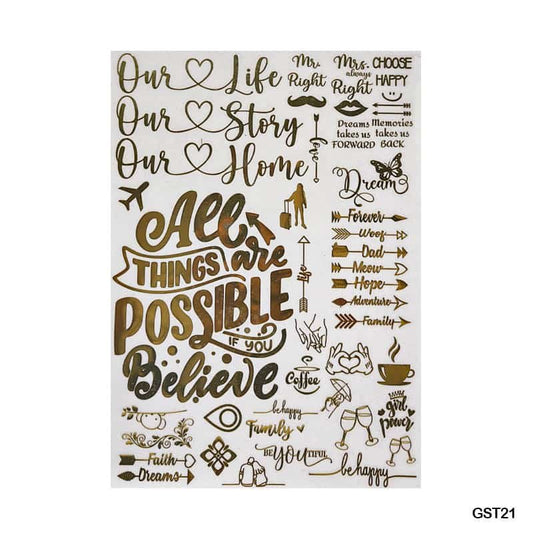 Our Life
Our Story
Our Home
Mr. Right
Mrs. always Right
CHOOSE HAPPY
Dreams takes us FORWARD
Memories takes us BACK
love
Dream
All THINGS are POSSIBLE IF YOU Believe
life
Forever
Woof
Dad
Meow
Hope
Adventure
Family
Coffee
girl power
be happy
Family
BEYOUTIFUL
be happy
Faith
Dreams
GST21